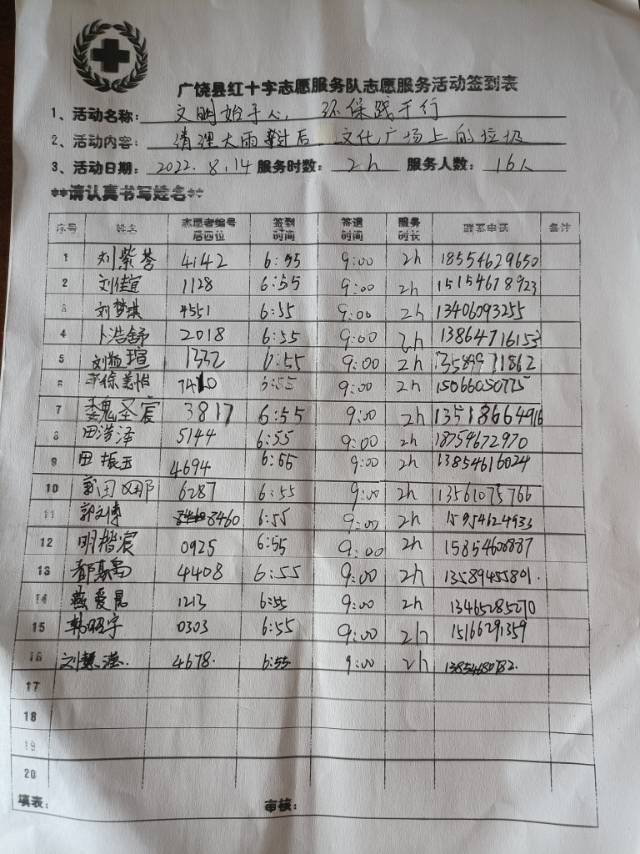 广饶县红十字志愿服务队志愿服务活动签到表
1、活动名称：文明始于心，环保践于行
2、活动内容：清理大雨过后 文化广场上的垃圾
3、活动日期：2022.8.14 服务时数：2h 服务人数：16人
**请认真书写姓名**
序号 姓名 志愿者编号后四位 签到时间 签退时间 服务时长 联系电话 备注
1 刘紫誉 4142 6:55 9:00 2h 18554629650
2 刘佳宜 1128 6:55 9:00 2h 15154678923
3 刘梦琪 4551 6:55 9:00 2h 13406093255
4 卜浩舒 2018 6:55 9:00 2h 13864716153
5 刘 瑄 1332 6:55 9:00 2h 13589971862
6 7410 6:55 9:00 2h 15066050775
7 魏圣宸 3817 6:55 9:00 2h 13518664916
8 田浩泽 5144 6:55 9:00 2h 18754672970
9 田振玉 4694 6:55 9:00 2h 13854616024
10 6287 6:55 9:00 2h 13561075766
11 郭文博 8460 6:55 9:00 2h 15954624933
12 明楷宸 0925 6:55 9:00 2h 15854600887
13 4408 6:55 9:00 2h 13589455801.
14 燕爱晨 1213 6:55 9:00 2h 13465285270
15 韩明宇 0303 6:55 9:00 2h 15166291359
16 刘慧 4678. 6:55 9:00 2h
17
18
19
20
填表： 审核：